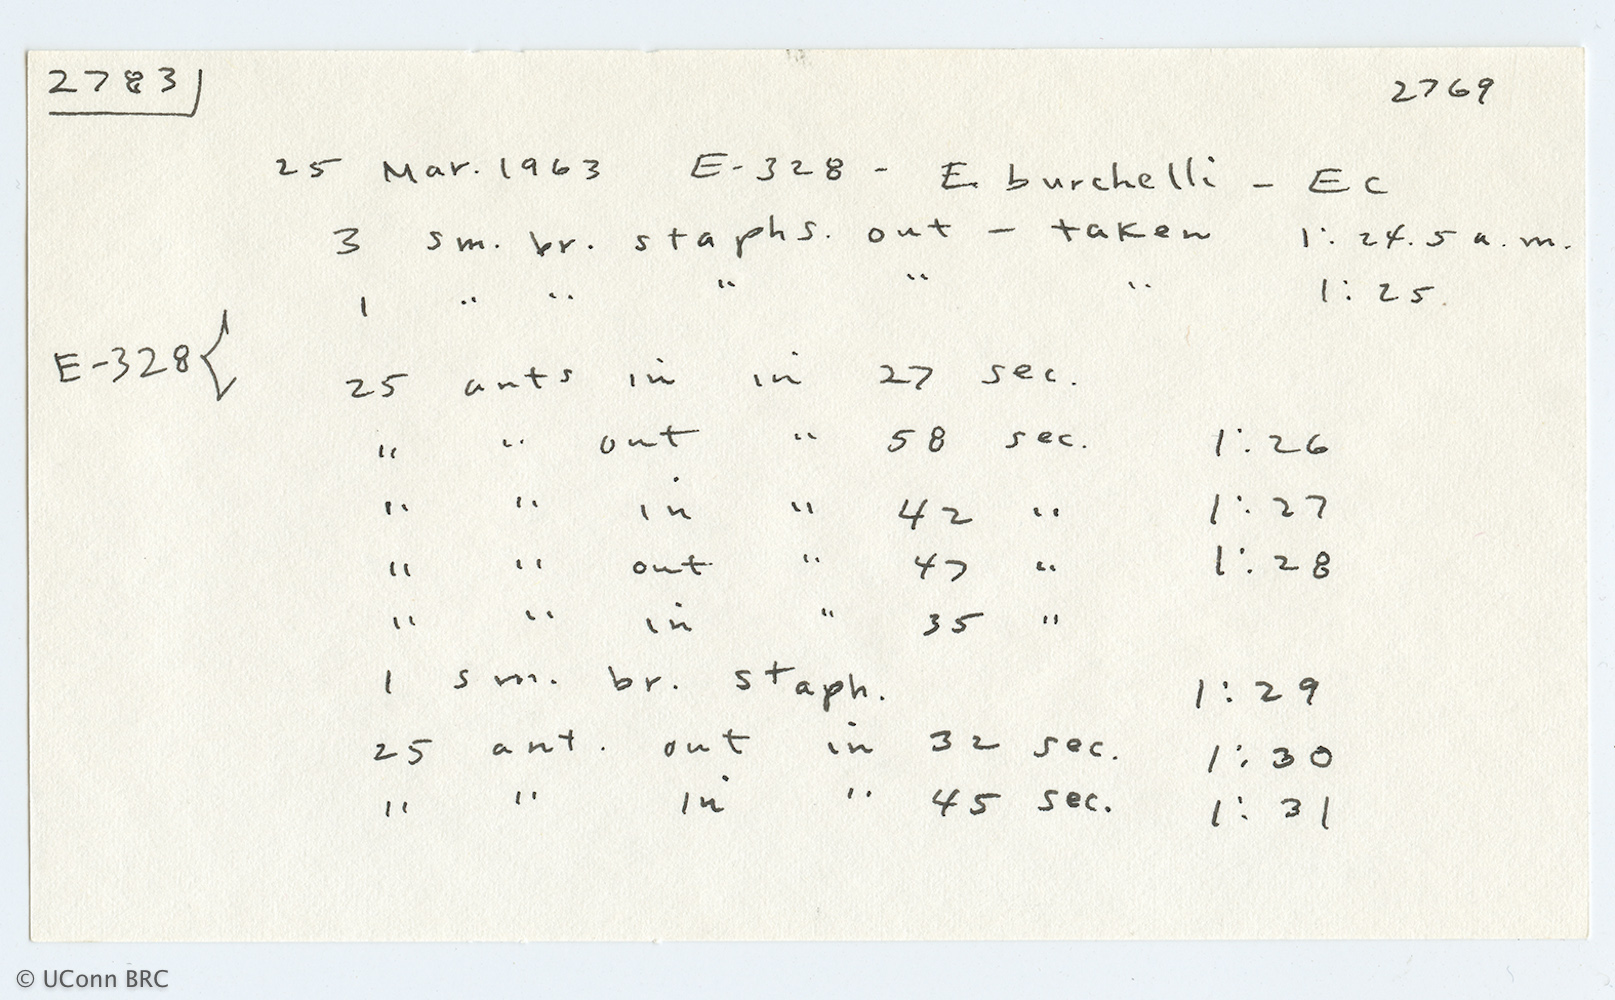 2783 2769
25 Mar. 1963 E-328 - E. burchelli - Ec
3 sm. br. staphs. out - taken 1:24.5 a.m.
1 " " " " " 1:25.
E-328 {
25 ants in in 27 sec.
" " out " 58 sec. 1:26
" " in " 42 " 1:27
" " out " 47 " 1:28
" " in " 35 "
1 sm. br. staph. 1:29
25 ant. out in 32 sec. 1:30
" " in " 45 sec. 1:31
© UConn BRC